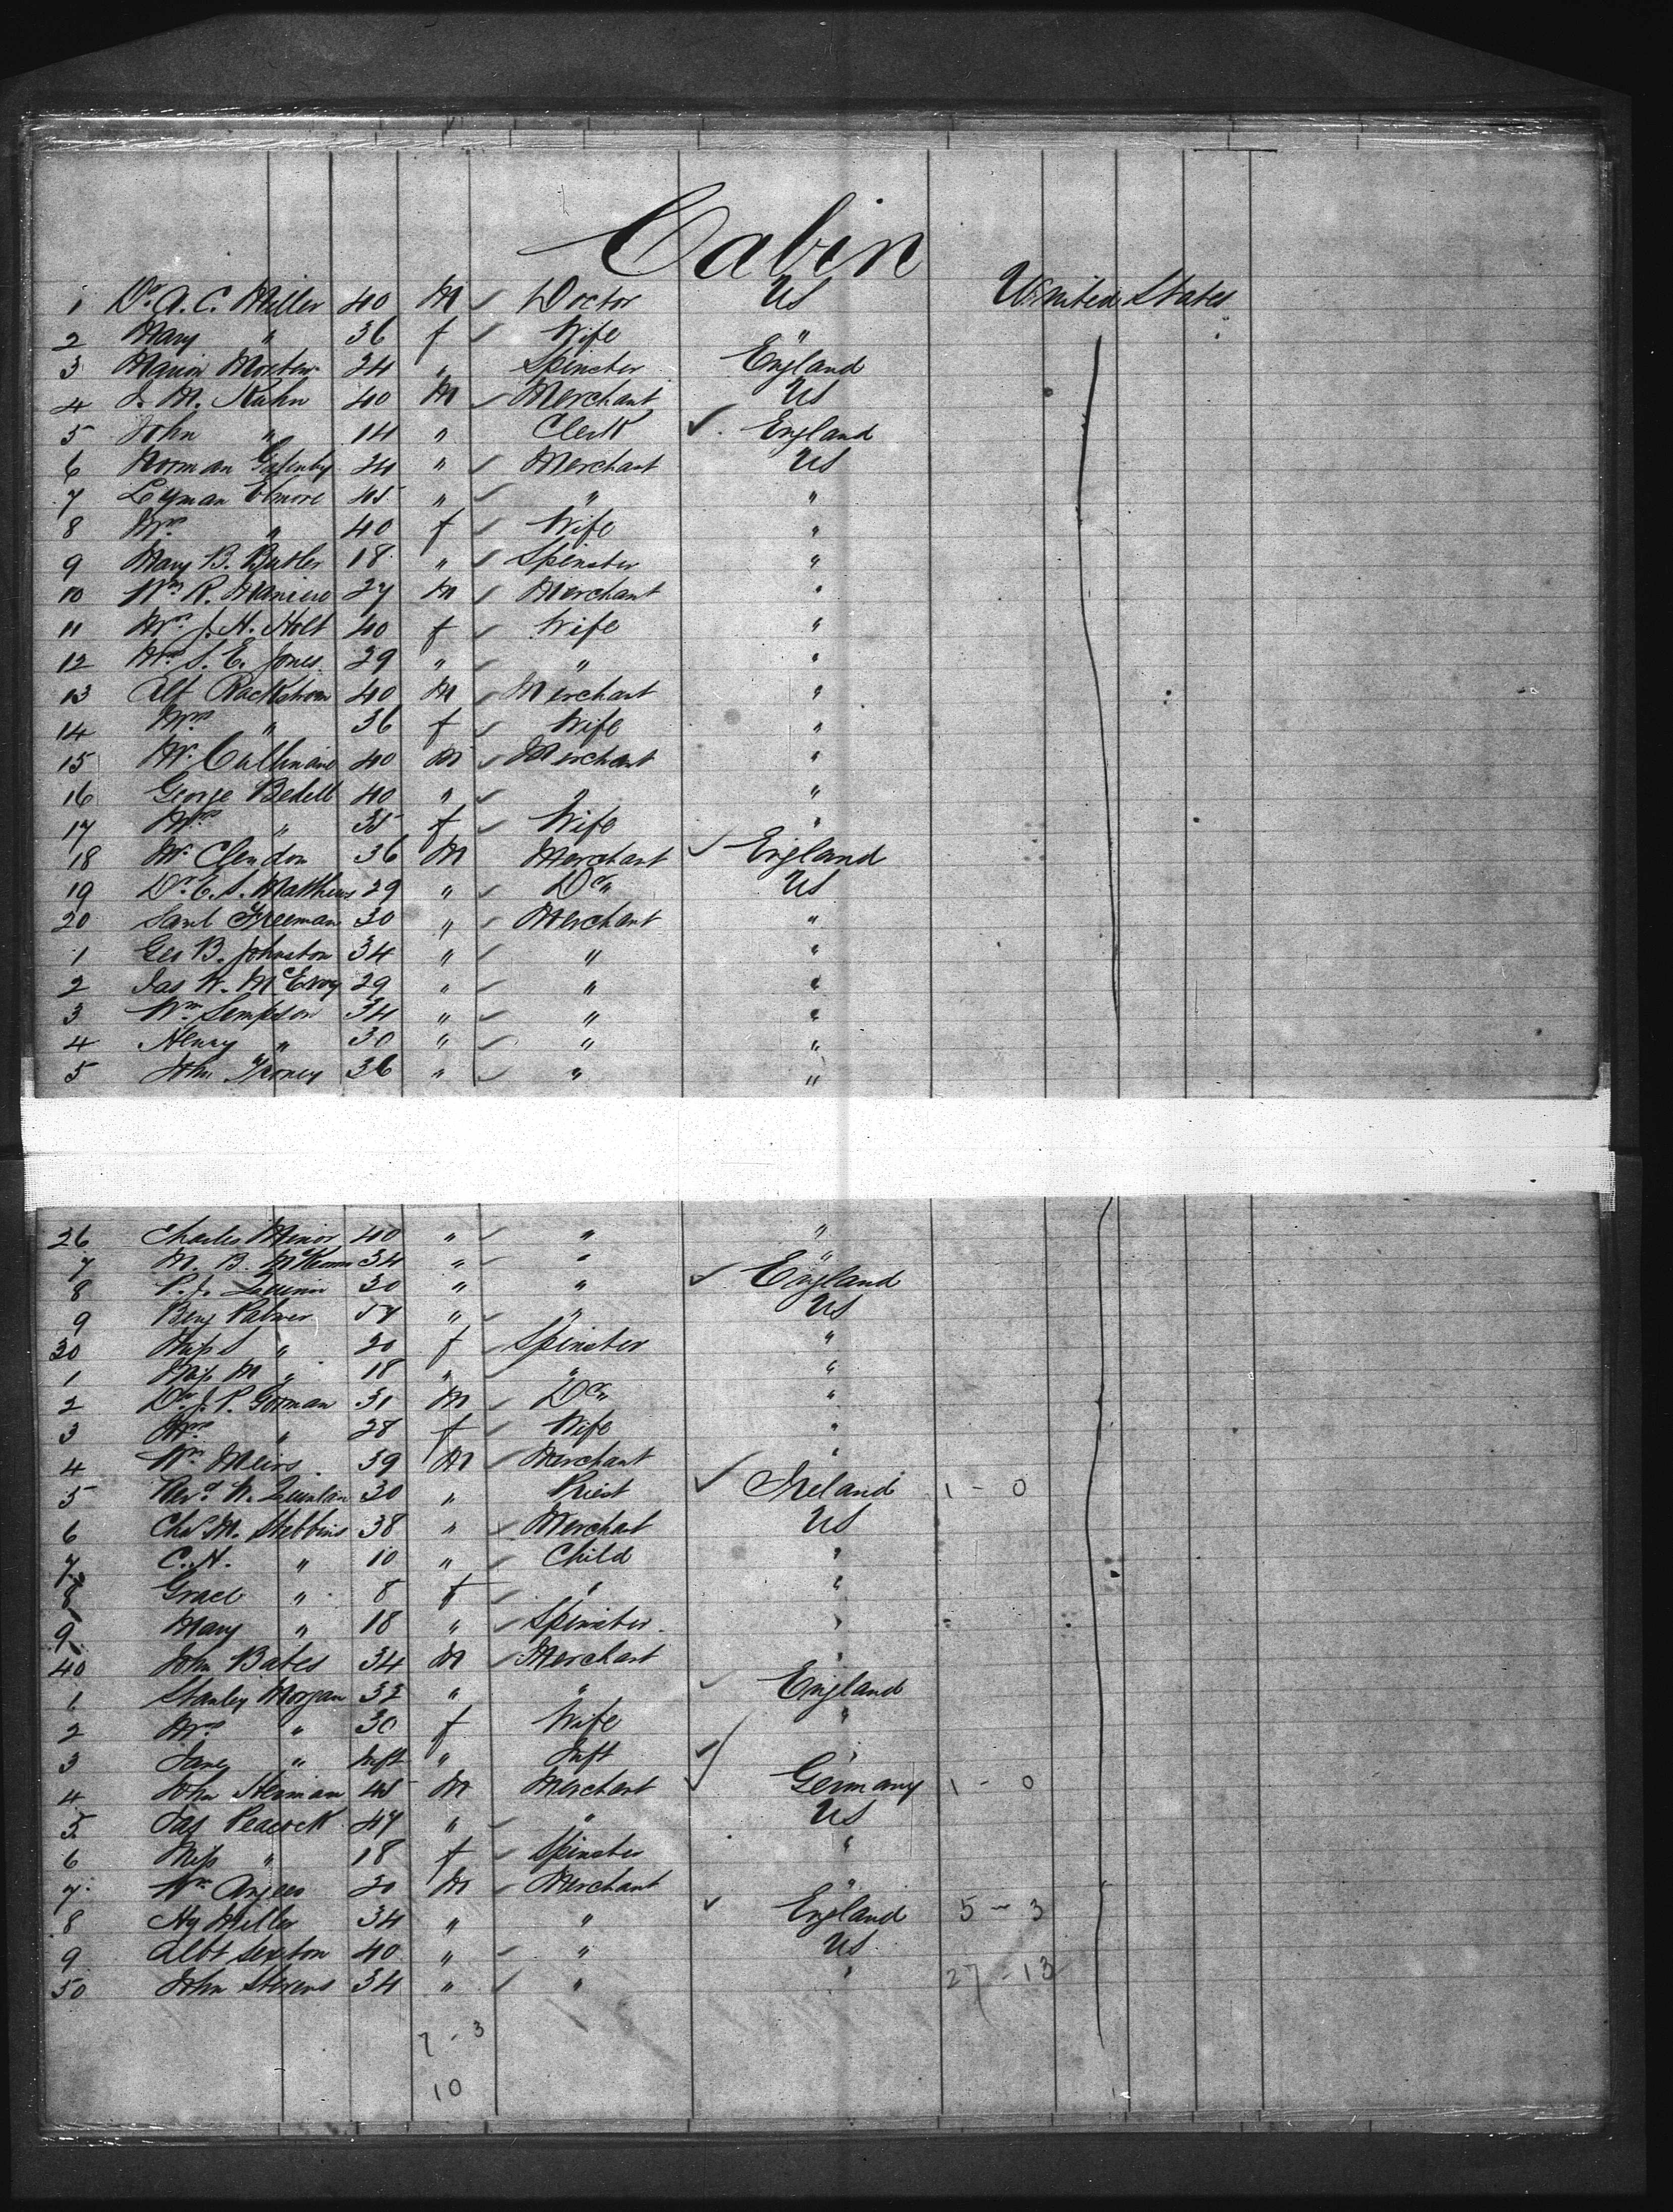 Cabin
1 Dr. A. C. Miller 40 M Doctor US United States
2 Mary " 36 f Wife "
3 Marion Morton 24 " Spinster England
4 J. M. Kuhn 40 M Merchant US
5 John " 14 " Clerk England
6 Norman 24 " Merchant US
7 Lyman Elmore 45 " " "
8 Mrs " 40 f Wife "
9 Mary B. Butler 18 " Spinster "
10 Wm R. 27 M Merchant "
11 Mrs J. H. Holt 40 f Wife "
12 Mrs S. E. Jones 29 " " "
13 Alf Rackstrow 40 M Merchant "
14 Mrs " 36 f Wife "
15 Mr. Cullinane 40 M Merchant "
16 George Bedell 40 " " "
17 Mrs " 35 f Wife "
18 Mr Clendon 36 M Merchant England
19 Dr. E. S. Matthews 29 " Dr " US
20 Saml Freeman 30 " Merchant "
1 Geo B. Johnston 34 " " "
2 Jas W. McEvoy 29 " " "
3 Wm Sempson 34 " " "
4 Henry " 30 " " "
5 John 36 " " "
26 Charles Minor 40 " " "
7 M. B. McKeon 34 " " "
8 P. J. 30 " " England
9 Benj Palmer 57 " " US
30 Miss S " 20 f Spinster "
1 Miss M " 18 " " "
2 Dr. J. P. Gorman 31 M Dr " "
3 Mrs " 28 f Wife "
4 Wm Meirs 39 M Merchant "
5 Revd. W. Quinlan 30 " Priest Ireland 1 - 0
6 Chas M. Stebbins 38 " Merchant US
7 C. H. " 10 " Child "
8 Grace " 8 f " "
9 Mary " 18 " Spinster "
40 John Bates 34 M Merchant "
1 Stanley Morgan 33 " " England
2 Mrs " 30 f Wife "
3 Jane " Inft " Inft "
4 John Herman 45 M Merchant Germany 1 - 0
5 Jas Peacock 47 " " US
6 Miss " 18 f Spinster "
7 Wm 30 M Merchant "
8 Hy Miller 34 " " England 5 - 3
9 Albt Sexton 40 " " US
50 John Stevens 34 " " " 27 - 13
7 - 3
10